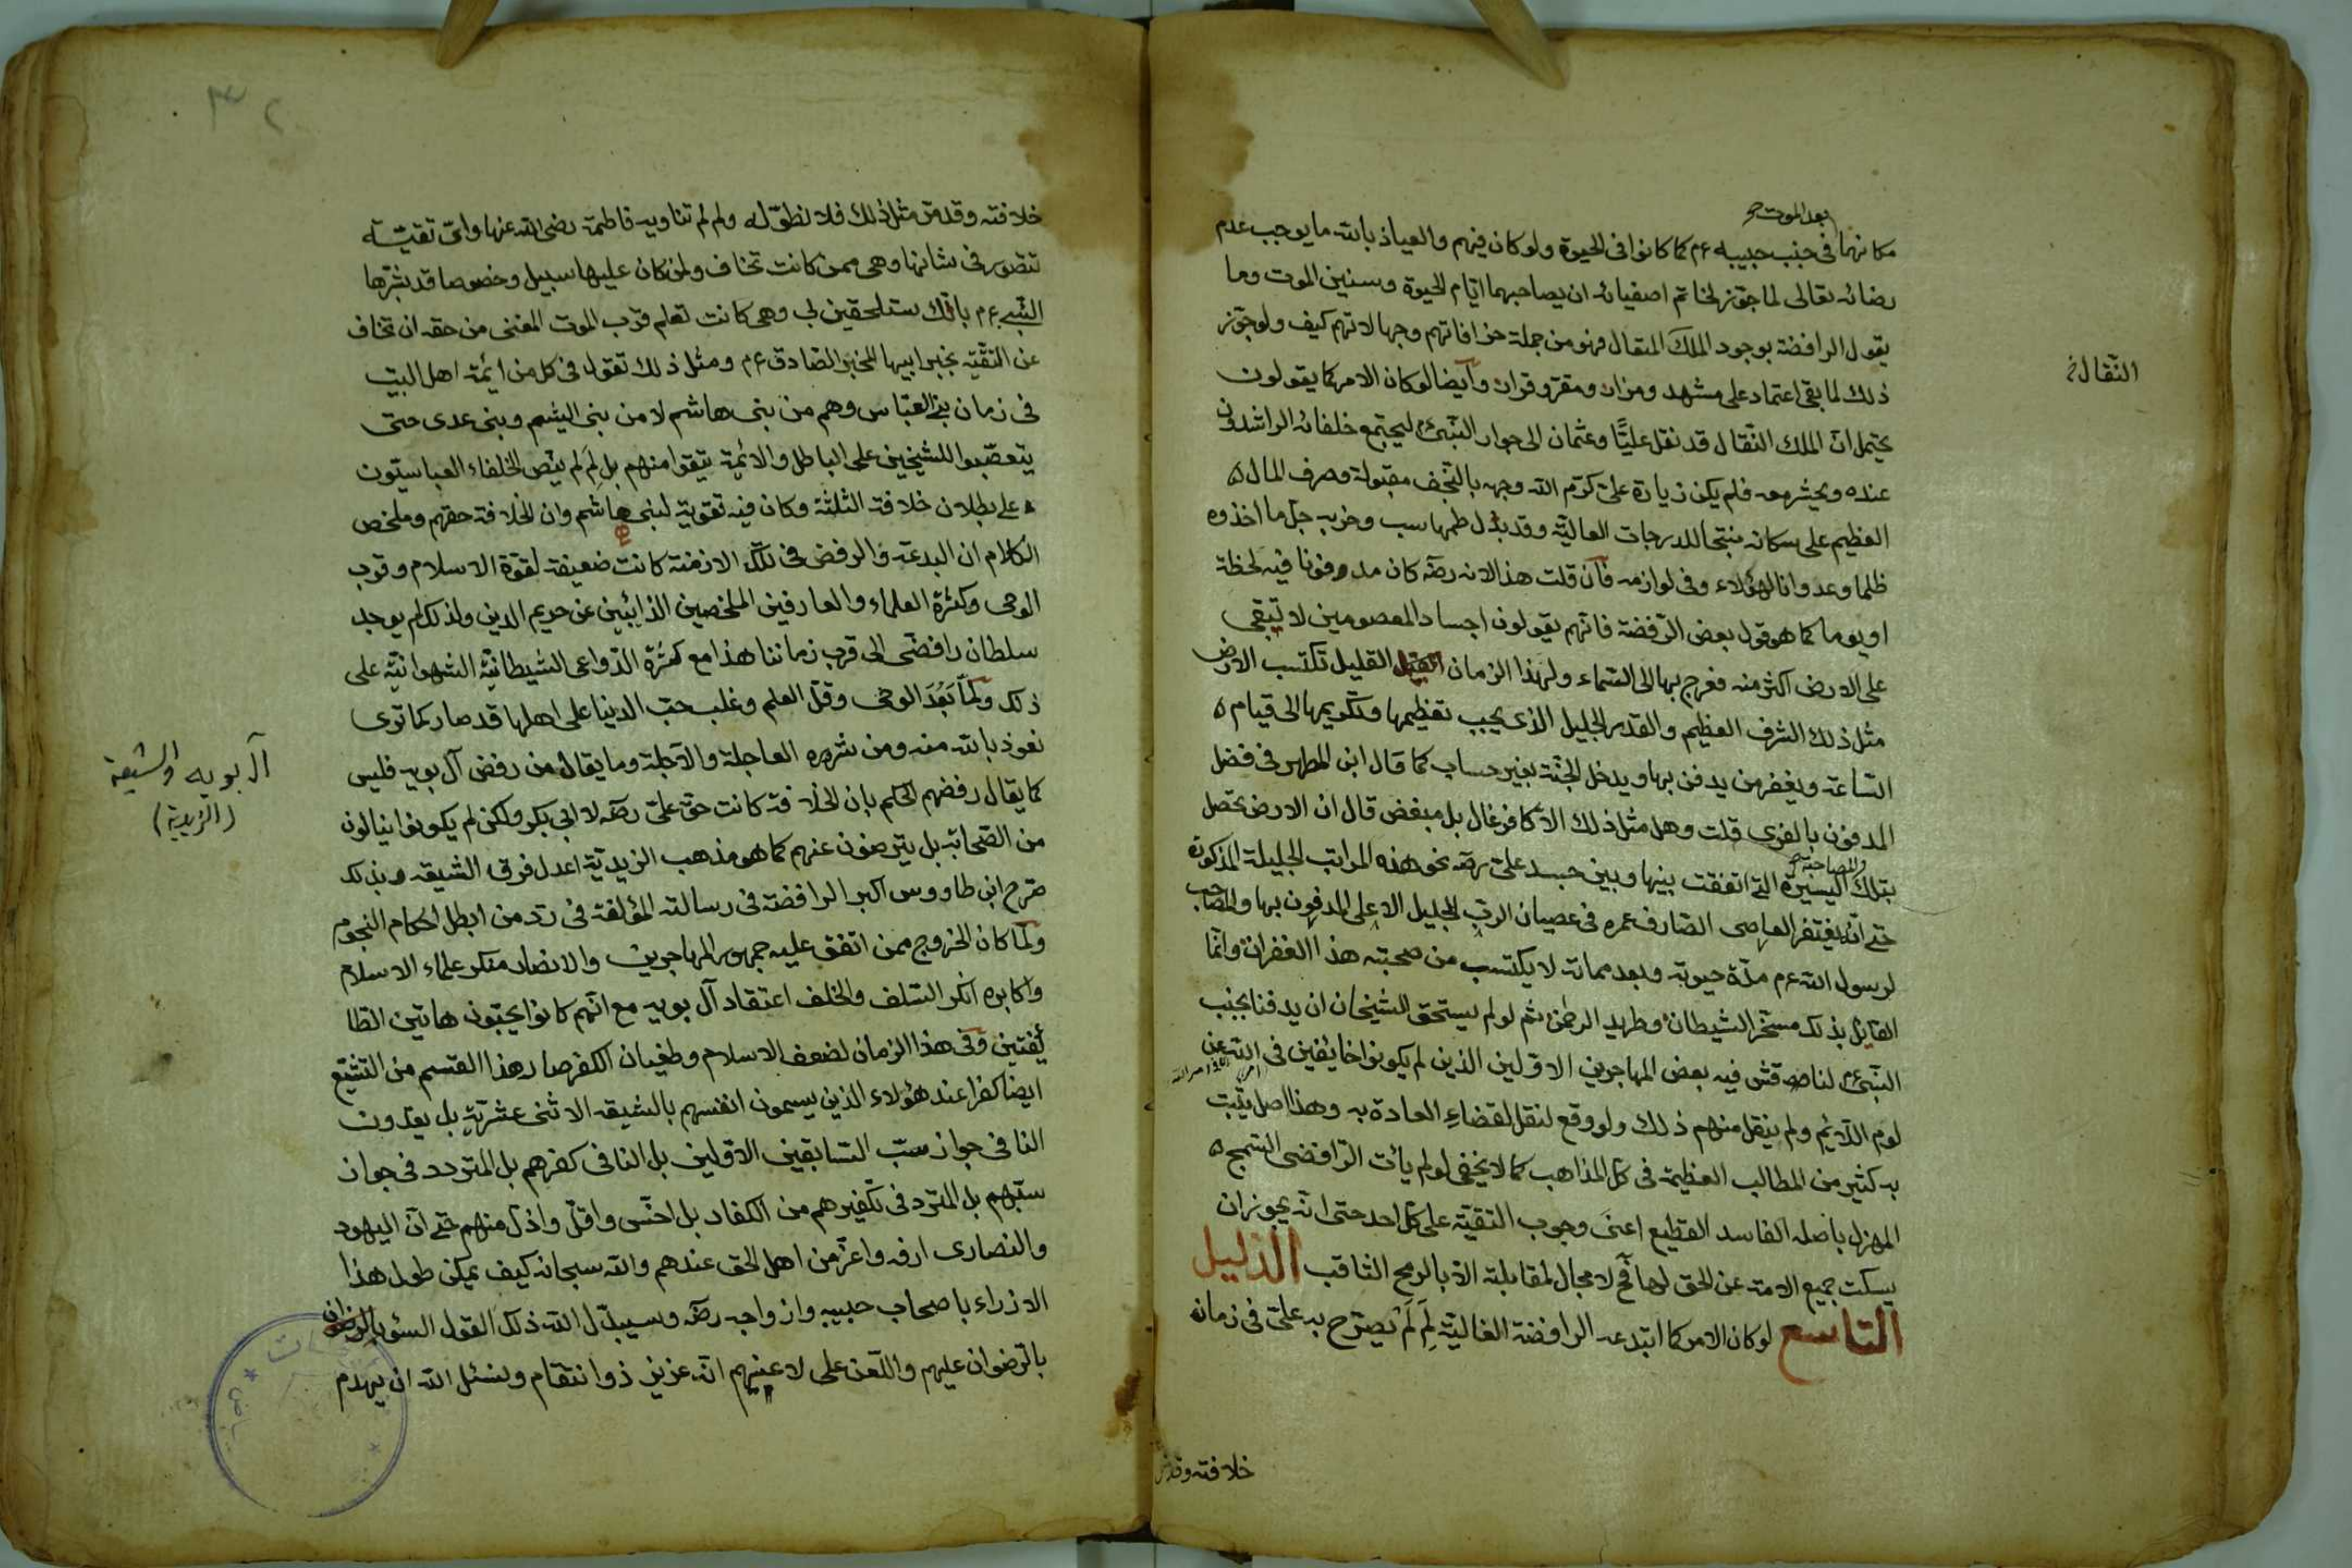 بعد الموت
مكانهما في جنب حبيبه ع م كما كانوا في الحيوة ولو كان فيهم والعياذ بالله ما يوجب عدم
رضائه تعالى لما جوز لخاتم اصفيائه ان يصاحبهما ايام الحيوة وسنين الموت وما
يقول الرافضة بوجود الملك النقال فهو من جملة خرافاتهم وجهالاتهم كيف ولو جوز
النقالة
ذلك لما بقي اعتماد على مشهد ومزار ومقر وقرار وايضا لو كان الامر كما يقولون
يحتمل ان الملك النقال قد نقل عليًّا وعثمان الى جوار النبي ليجتمع خلفائه الراشدون
عنده ويحشر معه فلم يكن زيارة علي كرم الله وجهه بالنجف مقبولة وصرف المال
العظيم على سكانه منتجا للدرجات العالية وقد بدل طمها سب وخرب جل ما اخذوه
ظلما وعدوانا لهؤلاء وفي لوازمه فان قلت هذا لانه رضه كان مدفونا فيه لحظة
او يوما كما هو قول بعض الرفضة فانهم يقولون اجساد المعصومين لا تبقى
على الارض اكثر منه فعرج بها الى السماء ولهذا الزمان القليل تكتسب الارض
مثل ذلك الشرف العظيم والقدر الجليل الذي يجب تعظيمها وتكريمها الى قيام
الساعة ويغفر من يدفن بها ويدخل الجنة بغير حساب كما قال ابن المطهر في فضل
المدفون بالغرى قلت وهل مثل ذلك الا كافر غال بل مبغض قال ان الارض تحصل
والمصاحبة
بتلك اليسيرة التي اتفقت بينها وبين جسد علي رضه نحو هذه المراتب الجليلة المذكورة
حتى انه يغتفر العاصي الصارف عمره في عصيان الرب الجليل الاعلى المدفون بها والمصاحب
لرسول الله ع م مدة حيوته وبعد مماته لا يكتسب من صحبته هذا الغفران وانما
القايل بذلك مسخر الشيطان وطريد الرحمن ثم لو لم يستحق الشيخان ان يدفنا بجنب
النبي ع م لناقش فيه بعض المهاجرين الاولين الذين لم يكونوا خايفين في الله عن
لوم اللائم ولم ينقل منهم ذلك ولو وقع لنقل لقضاء العادة به وهذا اصل يثبت
به كثير من المطالب العظيمة في كل المذاهب كما لا يخفى لو لم يأت الرافضى السمج
المهزل باصله الفاسد الفظيع اعنى وجوب التقية على كل احد حتى انه يجوز ان
يسكت جميع الامة عن الحق لها فح لا مجال لمقابلته الا بالرمح الثاقب الدليل
التاسع لو كان الامر كما ابتدعه الرافضة الغالية لِمَ لَمْ يصرح به علي في زمان
خلافته وقد مر
٣٢
خلافته وقد مر مثل ذلك فلا نطول له ولم لم تناو به فاطمة رضى الله عنها واى تقية
تتصور في شانها وهي ممن كانت تخاف ولمن كان عليها سبيل وخصوصا قد بشرها
النبي ع م بانك ستلحقين لي وهي كانت تعلم قرب الموت المغنى من حقه ان تخاف
عن التقية بخبر ابيها المخبر الصادق ع م ومثل ذلك تقول في كل من ائمة اهل البيت
في زمان بني العباس وهم من بنى هاشم لا من بنى اليتيم وبنى عدى حتى
يتعصبوا للشيخين على الباطل والائمة يتقوا منهم بل لِمَ لم ينص الخلفاء العباسيون
على بطلان خلافة الثلثة وكان فيه تقوية لبنى هاشم وان الخلافة حقهم وملخص
الكلام ان البدعة والرفض في تلك الازمنة كانت ضعيفة لقوة الاسلام وقرب
الوحى وكثرة العلماء والعارفين الملخصين الذابئين عن حريم الدين ولذلك لم يوجد
سلطان رافضى الى قرب زماننا هذا مع كثرة الدواعى الشيطانية الشهوانية على
ذلك ولما بَعُدَ الوحى وقل العلم وغلب حب الدنيا على اهلها قد صار كما ترى
نعوذ بالله منه ومن شره العاجلة والآجلة وما يقال من رفض آل بويه فليس
آل بويه والشيعة
(الزيدية)
كما يقال رفضهم الحكم بان الخلافة كانت حق علي رضه لا ابى بكر ولكن لم يكونوا ينالون
من الصحابة بل يترضون عنهم كما هو مذهب الزيدية اعدل فرق الشيعه وبذلك
صرح ابن طاووس اكبر الرافضة في رسالته المؤلفة في رد من ابطل احكام النجوم
ولما كان الخروج ممن اتفق عليه جمهور المهاجرين والانصار منكر علماء الاسلام
واكابره انكر السلف والخلف اعتقاد آل بويه مع انهم كانوا يحبون هاتين الطا
ئفتين وفى هذا الزمان لضعف الاسلام وطغيان الكفر صار هذا القسم من التشيع
ايضا كفرا عند هؤلاء الذين يسمون انفسهم بالشيعه الاثنى عشرية بل يعدون
النافى جواز سب السابقين الاولين بل النافى كفرهم بل المتردد في جواز
سبهم بل المتردد في تكفيرهم من الكفار بل اخس واقل واذل منهم حتى ان اليهود
والنصارى ارفه واعز من اهل الحق عندهم والله سبحانه كيف يمكن طول هذا
الازراء باصحاب حبيبه وازواجه رضه وسيبدل الله ذلك القول السؤ بالرضوان
بالرضوان عليهم واللعن على لاعنيهم انه عزيز ذو انتقام ونسئل الله ان يهدم